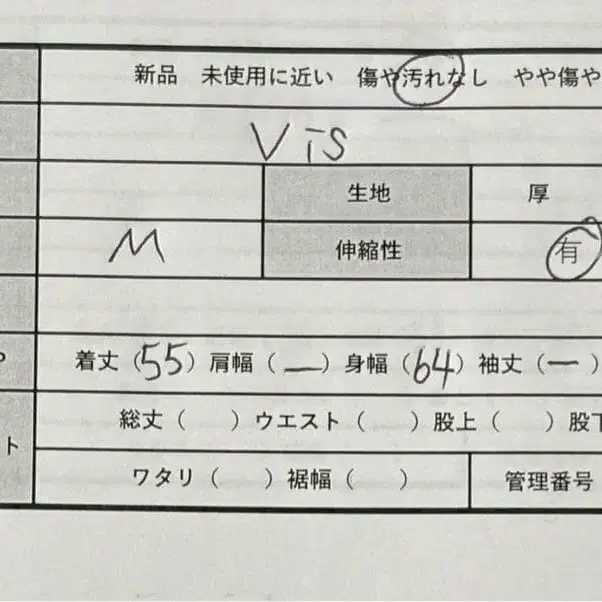 新品 未使用に近い 傷や汚れなし やや傷や
Vis
生地 厚
M 伸縮性 有
着丈（55）肩幅（ー）身幅（64）袖丈（ー）
総丈（ ）ウエスト（ ）股上（ ）股下
ト
ワタリ（ ）裾幅（ ） 管理番号